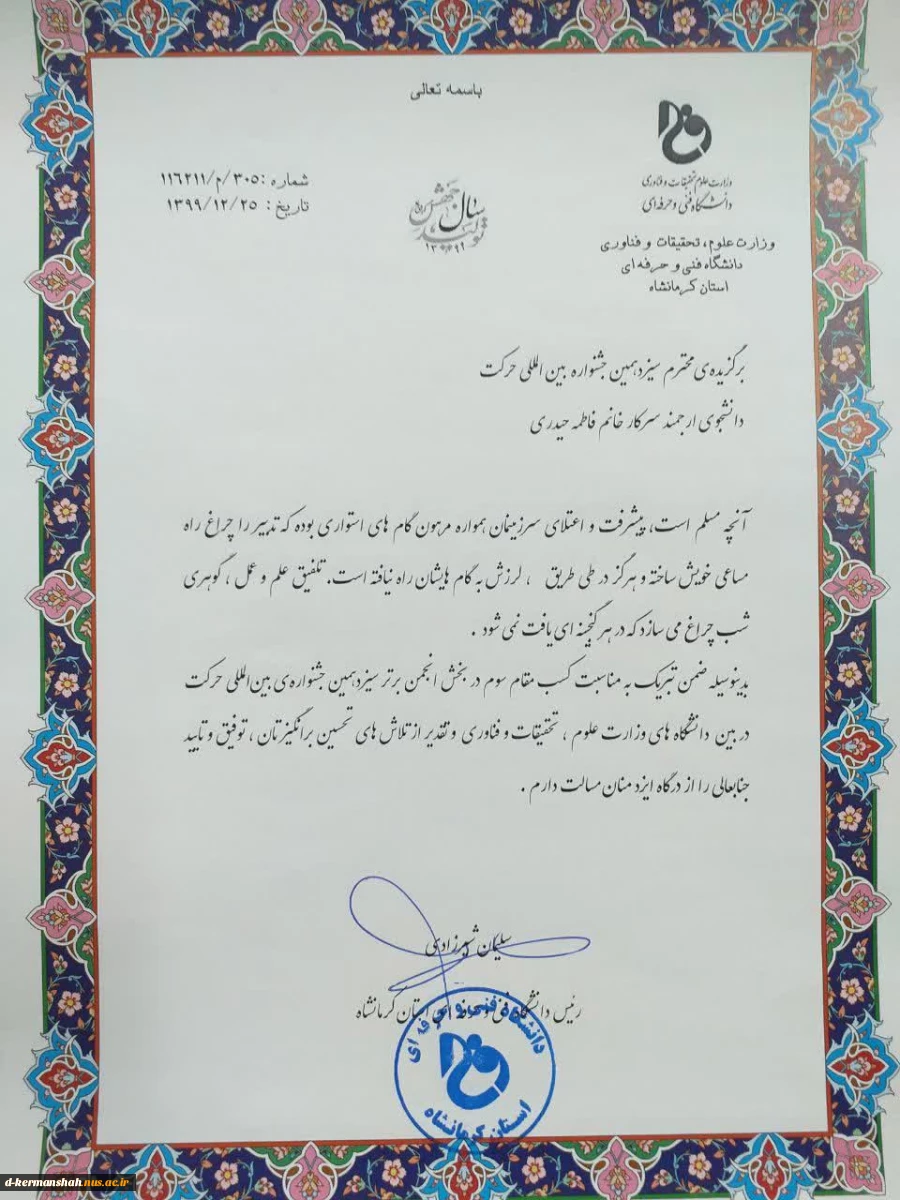 باسمه تعالی
وزارت علوم تحقیقات و فناوری
دانشگاه فنی و حرفه‌ای
وزارت علوم، تحقیقات و فناوری
دانشگاه فنی و حرفه ای
استان کرمانشاه
سال جهش تولید
۱۳۹۹
شماره :۳۰۵/م/۱۱۶۲۱۱
تاریخ : ۱۳۹۹/۱۲/۲۵
برگزیده‌ی محترم سیزدهمین جشنواره بین المللی حرکت
دانشجوی ارجمند سرکار خانم فاطمه حیدری
آنچه مسلم است، پیشرفت و اعتلای سرزمینمان همواره مرهون گام های استواری بوده که تدبیر را چراغ راه
مساعی خویش ساخته و هرگز در طی طریق ، لرزش به گام هایشان راه نیافته است. تلفیق علم و عمل ، گوهری
شب چراغ می سازد که در هر گنجینه ای یافت نمی شود .
بدینوسیله ضمن تبریک به مناسبت کسب مقام سوم در بخش انجمن برتر سیزدهمین جشنواره‌ی بین‌المللی حرکت
در بین دانشگاه های وزارت علوم ، تحقیقات و فناوری و تقدیر از تلاش های تحسین برانگیزتان ، توفیق و تایید
جنابعالی را از درگاه ایزد منان مسالت دارم .
سلیمان شیرزادی
رئیس دانشگاه فنی و حرفه ای استان کرمانشاه
دانشگاه فنی و حرفه ای
استان کرمانشاه
d-kermanshah.nus.ac.ir